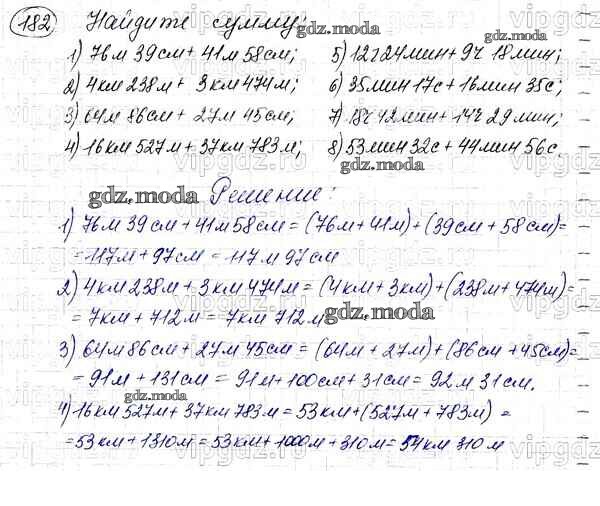 182 Найдите сумму:
1) 76м 39см + 41м 58см; 5) 12ч 24мин + 9ч 18мин;
2) 4км 238м + 3км 474м; 6) 35мин 17с + 16мин 35с;
3) 64м 86см + 27м 45см; 7) 18ч 42мин + 14ч 29мин;
4) 16км 527м + 37км 783м; 8) 53мин 32с + 44мин 56с.
gdz.moda Решение:
1) 76м 39см + 41м 58см = (76м + 41м) + (39см + 58см) =
= 117м + 97см = 117м 97см
2) 4км 238м + 3км 474м = (4км + 3км) + (238м + 474м) =
= 7км + 712м = 7км 712м gdz.moda
3) 64м 86см + 27м 45см = (64м + 27м) + (86см + 45см) =
= 91м + 131см = 91м + 100см + 31см = 92м 31см.
gdz.moda
4) 16км 527м + 37км 783м = 53км + (527м + 783м) =
= 53км + 1310м = 53км + 1000м + 310м = 54км 310м